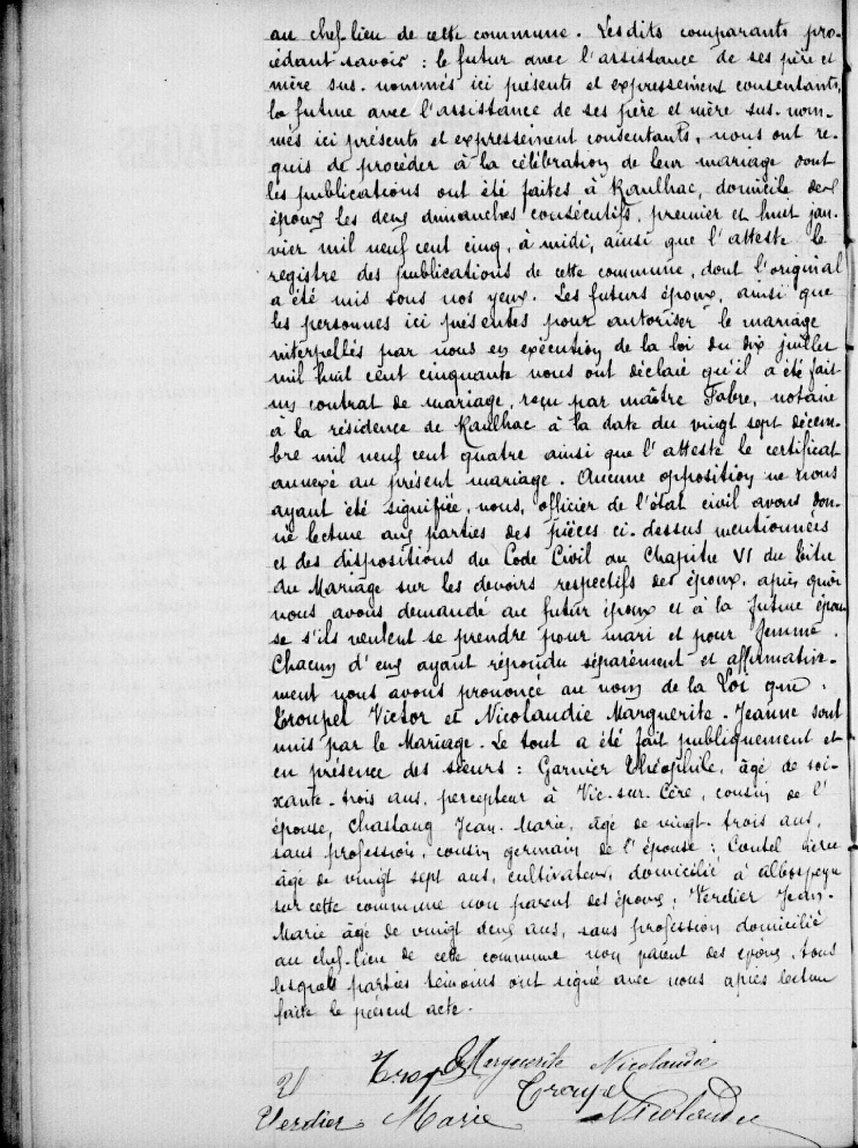 au chef-lieu de cette commune. Lesdits comparants pro-
cédant savoir : le futur avec l'assistance de ses père et
mère sus-nommés ici présents et expressement consentants,
la future avec l'assistance de ses père et mère sus-nom-
més ici présents et expressement consentants, nous ont re-
quis de procéder à la célébration de leur mariage dont
les publications ont été faites à Raulhac, domicile des
époux les deux dimanches consécutifs, premier et huit jan-
vier mil neuf cent cinq, à midi, ainsi que l'atteste le
registre des publications de cette commune, dont l'original
a été mis sous nos yeux. Les futurs époux, ainsi que
les personnes ici présentes pour autoriser le mariage
interpellés par nous en exécution de la loi du dix juillet
mil huit cent cinquante nous ont déclaré qu'il a été fait
un contrat de mariage, reçu par maître Fabre, notaire
à la résidence de Raulhac à la date du vingt sept décem-
bre mil neuf cent quatre ainsi que l'atteste le certificat
annexé au présent mariage. Aucune opposition ne nous
ayant été signifiée, nous, officier de l'état civil avons don-
né lecture aux parties des pièces ci-dessus mentionnées
et des dispositions du Code Civil au Chapitre VI du Titre
du Mariage sur les devoirs respectifs des époux, après quoi
nous avons demandé au futur époux et à la future épou
se s'ils veulent se prendre pour mari et pour femme.
Chacun d'eux ayant répondu séparément et affirmative-
ment nous avons prononcé au nom de la Loi que :
Troupel Victor et Nicolaudie Marguerite-Jeanne sont
unis par le Mariage. Le tout a été fait publiquement et
en présence des sieurs : Garnier Théophile, âgé de soi-
xante-trois ans, percepteur à Vic-sur-Cère, cousin de l'
épouse, Chastang Jean-Marie, âgé de vingt-trois ans,
sans profession, cousin germain de l'épouse ; Coutel
âgé de vingt sept ans, cultivateur, domicilié à Albospeyre
sur cette commune non parent des époux ; Verdier Jean-
Marie âgé de vingt deux ans, sans profession domicilié
au chef-lieu de cette commune non parent des époux, tous
lesquels parties témoins ont signé avec nous après lecture
faite le présent acte.
Marguerite Nicolaudie
Troupel
Verdier Marie Nicolaudie